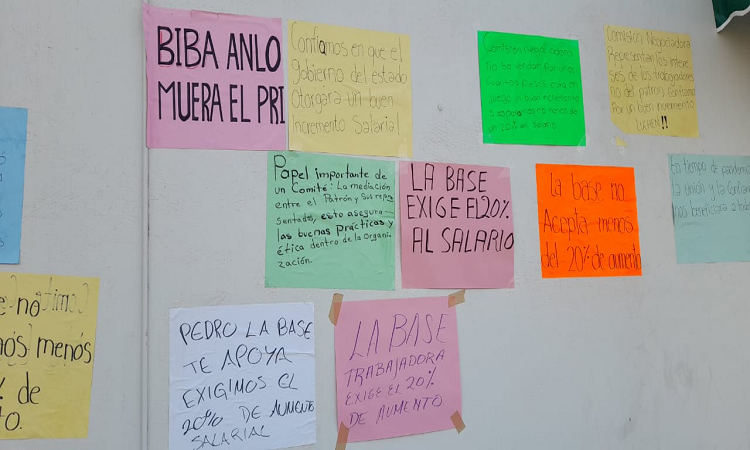 BIBA ANLO
MUERA EL PRI
Confiamos en que el
gobierno del estado
otorgara un buen
Incremento Salarial
Comisión Negociadora
no se vendan por unos
20% al salario
Comisión Negociadora
Representan los intere
ses de los trabajadores
no del patrón, confiamos
Por un buen incremento
!!
Papel importante de
un Comité: La mediación
entre el Patrón y Sus repre
sentados, esto asegura
las buenas prácticas y
ética dentro de la Organi
zación.
LA BASE
EXIGE El 20%
AL SALARIO
la base no
Acepta menos
del 20% de aumento
En tiempo de pandemia
la unión y la
nos beneficiara a
no
menos
% de
o.
PEDRO LA BASE
TE APOYA
EXIGIMOS EL
20% DE AUMENTO
SALARIAL
LA BASE
TRABAJADORA
EXIGE EL 20%
DE AUMENTO